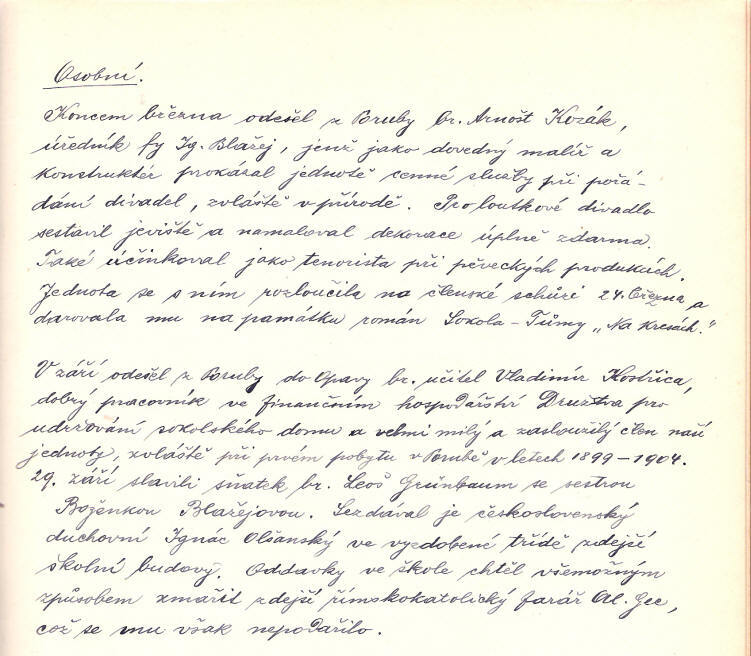 Osobní.
Koncem března odešel z Poruby br. Arnošt Kozák,
úředník fy Ig. Blažej, jenž jako dovedný malíř a
konstruktér prokázal jednotě cenné služby při pořá-
dání divadel, zvláště v přírodě. Pro loutkové divadlo
sestavil jeviště a namaloval dekorace úplně zdarma.
Také účinkoval jako tenorista při pěveckých produkcích.
Jednota se s ním rozloučila na členské schůzi 24. března a
darovala mu na památku román Sokola-Tůmy „Na kresách."
V září odešel z Poruby do Opavy br. učitel Vladimír Kostřica,
dobrý pracovník ve finančním hospodářství Družstva pro
udržování sokolského domu a velmi milý a zasloužilý člen naší
jednoty, zvláště při prvém pobytu v Porubě v letech 1899-1904.
29. září slavili sňatek br. Leoš Grünbaum se sestrou
Boženkou Blažejovou. Sezdával je československý
duchovní Ignác Olšanský ve vyzdobené třídě zdejší
školní budovy. Oddavky ve škole chtěl všemožným
způsobem zmařit zdejší římskokatolický farář Al. Gec,
což se mu však nepodařilo.